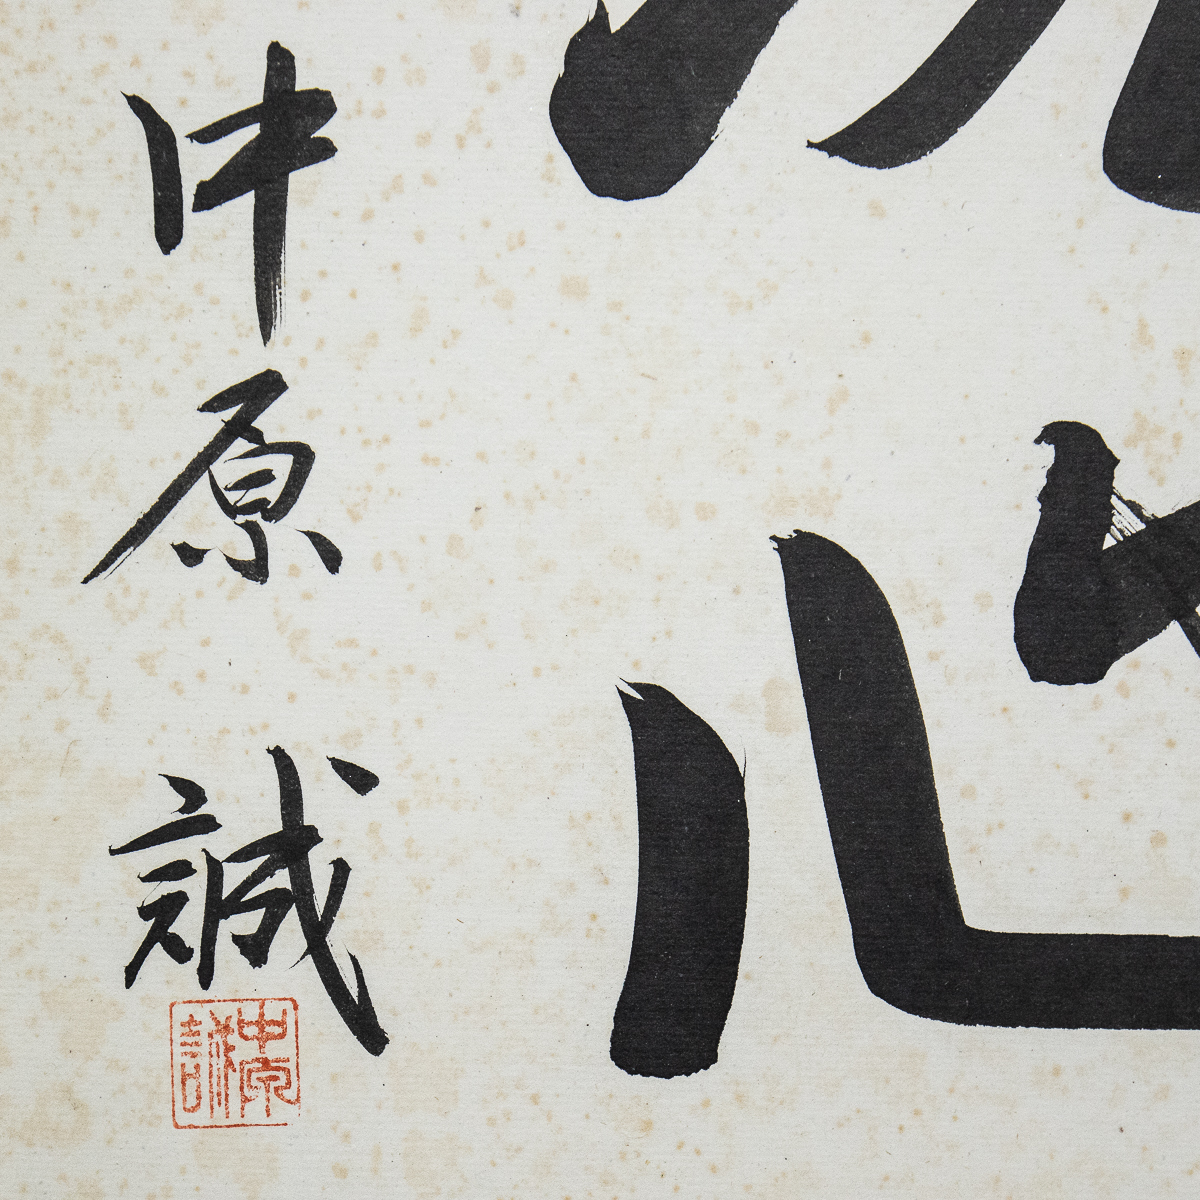 心
中原誠
中原誠